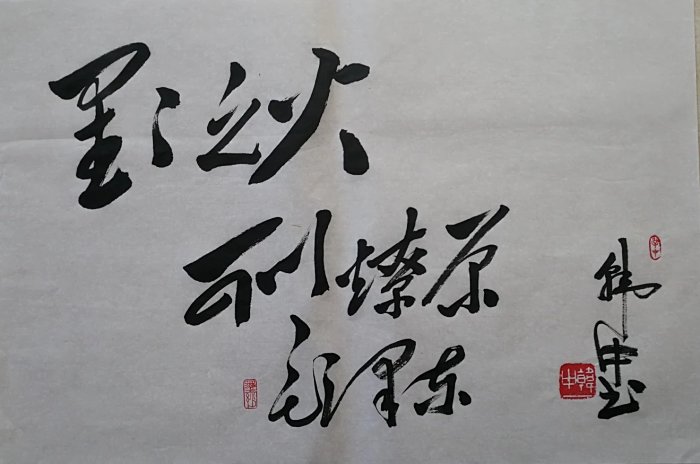 星々之火
可以燎原
毛泽东
韩中书
韓中